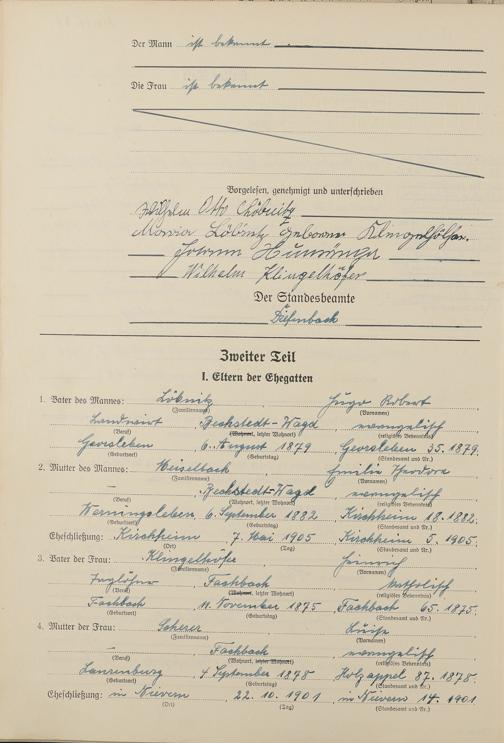 Der Mann ist bekannt
Die Frau ist bekannt
Vorgelesen, genehmigt und unterschrieben
Wilhelm Otto Löbnitz
Maria Löbnitz geborene Klingelhöfer.
Johann
Wilhelm Klingelhöfer
Der Standesbeamte
Diefenbach
Zweiter Teil
I. Eltern der Ehegatten
1. Vater des Mannes: Löbnitz, Hugo Robert
(Familienname) (Vornamen)
Landwirt Bechstedt-Wagd evangelisch
(Beruf) (Wohnort, letzter Wohnort) (religiöses Bekenntnis)
Gorsleben 6. August 1879 Gorsleben 35. 1879.
(Geburtsort) (Geburtstag) (Standesamt und Nr.)
2. Mutter des Mannes: Weiselbach Emilie Theodore
(Familienname) (Vornamen)
– Bechstedt-Wagd evangelisch
(Beruf) (Wohnort, letzter Wohnort) (religiöses Bekenntnis)
Werningsleben 6. September 1882 Kirchheim 18. 1882.
(Geburtsort) (Geburtstag) (Standesamt und Nr.)
Eheschließung: Kirchheim 7. Mai 1905 Kirchheim 5. 1905.
(Ort) (Tag) (Standesamt und Nr.)
3. Vater der Frau: Klingelhöfer Heinrich
(Familienname) (Vornamen)
Taglöhner Fachbach katholisch
(Beruf) (Wohnort, letzter Wohnort) (religiöses Bekenntnis)
Fachbach 11. November 1875 Fachbach 65. 1875.
(Geburtsort) (Geburtstag) (Standesamt und Nr.)
4. Mutter der Frau: Scherer Luise
(Familienname) (Vornamen)
– Fachbach evangelisch
(Beruf) (Wohnort, letzter Wohnort) (religiöses Bekenntnis)
Laurenburg 4. September 1878 Holzappel 87. 1878.
(Geburtsort) (Geburtstag) (Standesamt und Nr.)
Eheschließung: in Nievern 22. 10. 1901 in Nievern 14. 1901
(Ort) (Tag) (Standesamt und Nr.)